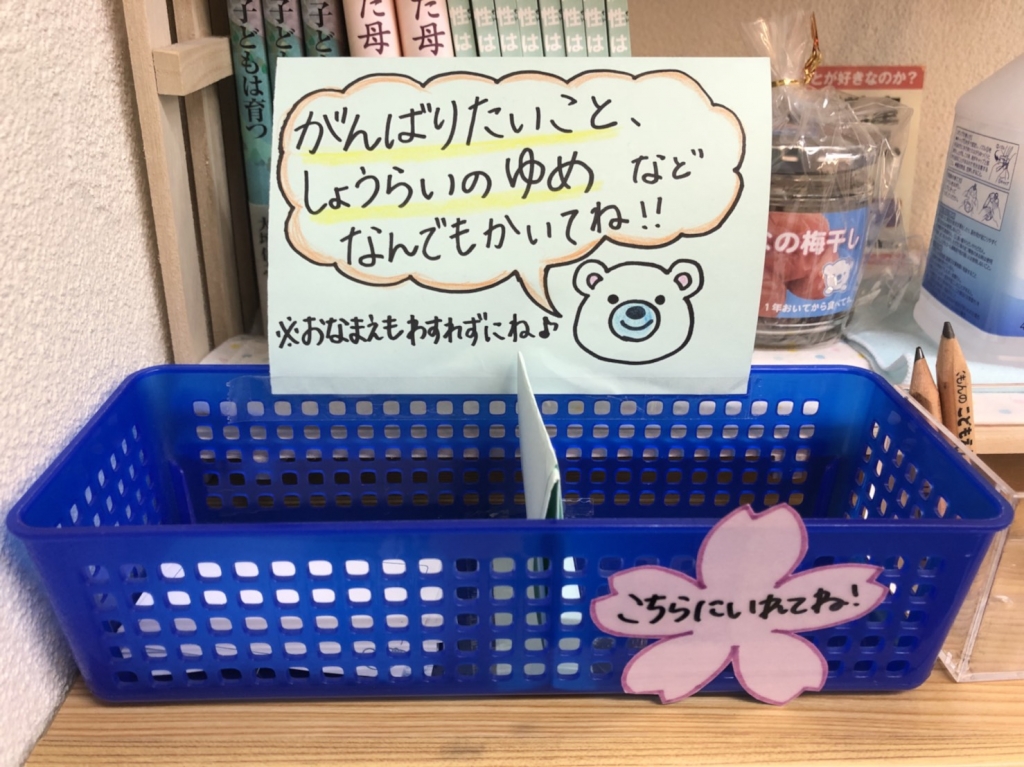 がんばりたいこと、
しょうらいの ゆめ など
なんでもかいてね!!
※おなまえもわすれずにね♪
こちらにいれてね!
子どもは育つ
た母
た母
性は
性は
性は
性は
性は
性は
とが好きなのか?
の梅干し
1年おいてから食べて